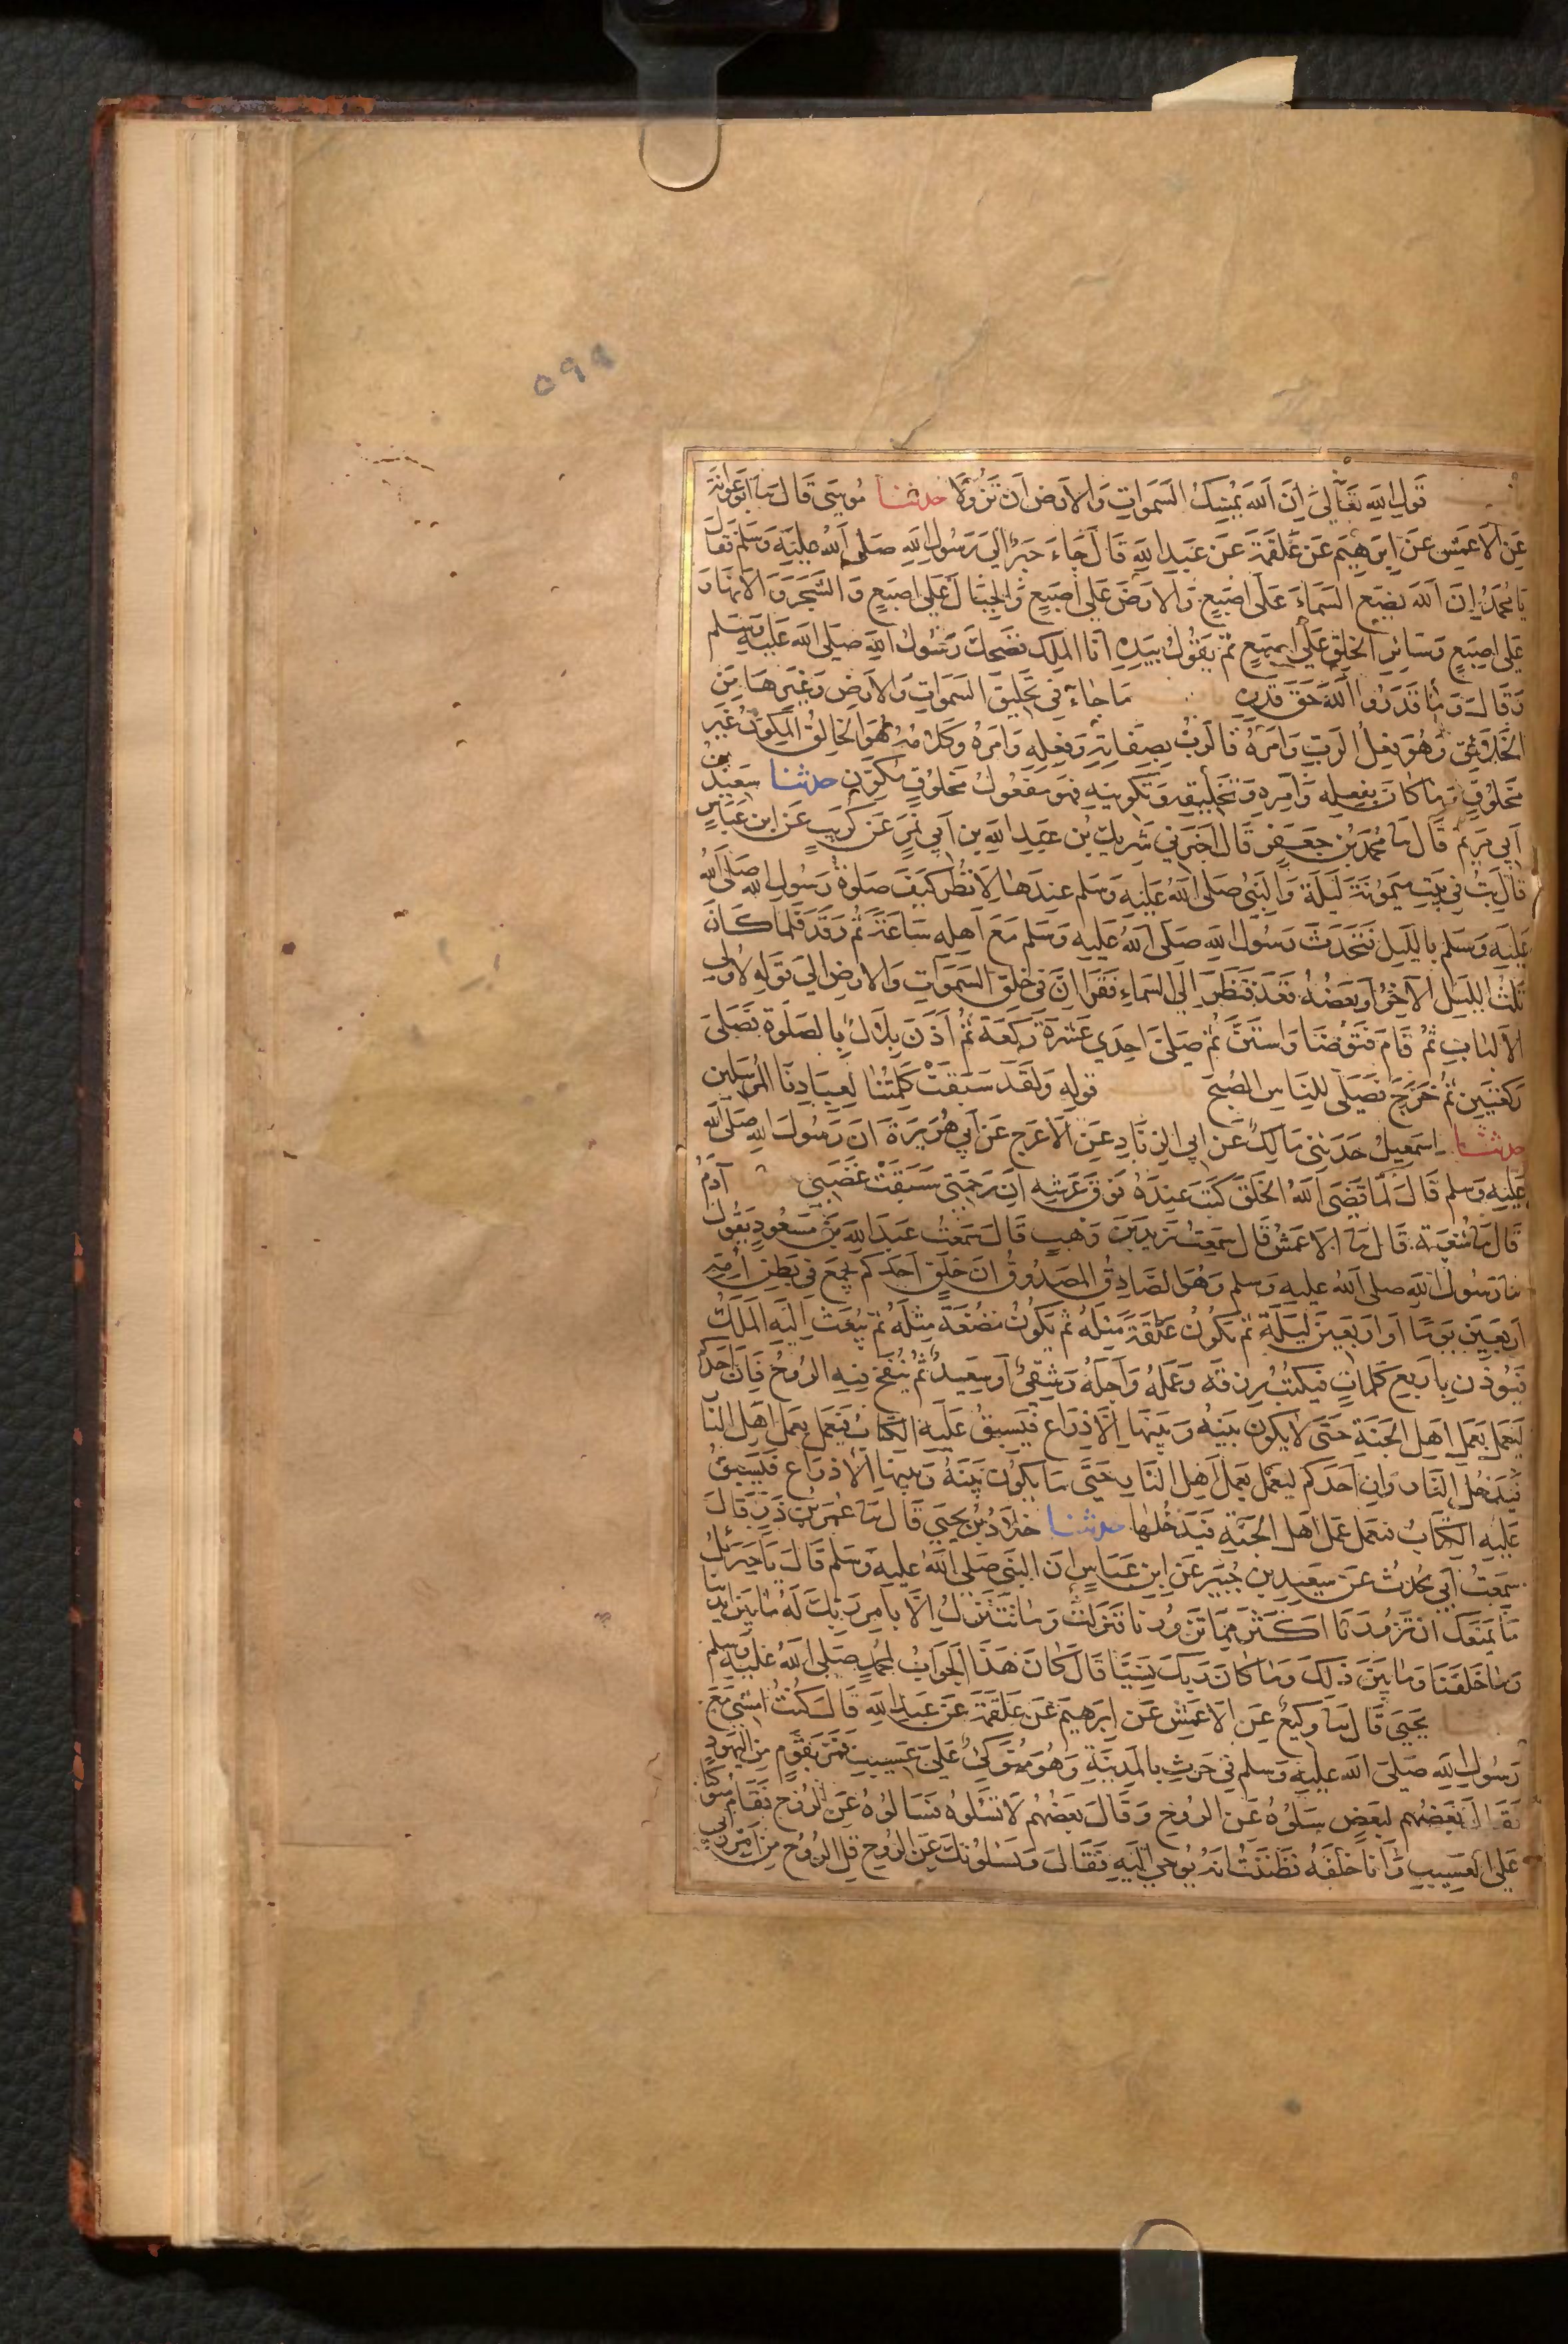 ٥٩٩
باب قول الله تعالى ان الله يمسك السموات والارض ان تزولا حدثنا موسى قال نا ابو عوانة
عن الاعمش عن ابرهيم عن علقمة عن عبد الله قال جاء حبر الى رسول الله صلى الله عليه وسلم فقال
يا محمد ان الله يضع السماء على اصبع والارض على اصبع والجبال على اصبع والشجر والانهار
على اصبع وسائر الخلق على اصبع ثم يقول بيده انا الملك فضحك رسول الله صلى الله عليه وسلم
وقال وما قدروا الله حق قدره باب ما جاء في تخليق السموات والارض وغيرها من
الخلائق وهو فعل الرب وامره فالرب بصفاته وفعله وامره وكلامه هو الخالق المكون غير
مخلوق وما كان بفعله وامره وتخليقه وتكوينه فهو مفعول مخلوق مكون حدثنا سعيد بن
ابي مريم قال نا محمد بن جعفر قال اخبرني شريك بن عبد الله بن ابي نمر عن كريب عن ابن عباس
قال بت في بيت ميمونة ليلة والنبي صلى الله عليه وسلم عندها لانظر كيف صلوة رسول الله صلى الله
عليه وسلم بالليل فتحدث رسول الله صلى الله عليه وسلم مع اهله ساعة ثم رقد فلما كان
ثلث الليل الآخر او بعضه قعد فنظر الى السماء فقرا ان في خلق السموات والارض الى قوله لاولي
الالباب ثم قام فتوضا واستن ثم صلى احدى عشرة ركعة ثم اذن بلال بالصلوة فصلى
ركعتين ثم خرج فصلى للناس الصبح باب قوله ولقد سبقت كلمتنا لعبادنا المرسلين
حدثنا اسمعيل حدثني مالك عن ابي الزناد عن الاعرج عن ابي هريرة ان رسول الله صلى الله
عليه وسلم قال لما قضى الله الخلق كتب عنده فوق عرشه ان رحمتي سبقت غضبي حدثنا آدم
قال نا شعبة قال نا الاعمش قال سمعت زيد بن وهب قال سمعت عبد الله بن مسعود يقول
نا رسول الله صلى الله عليه وسلم وهو الصادق المصدوق ان خلق احدكم يجمع في بطن امه
اربعين يوما او اربعين ليلة ثم يكون علقة مثله ثم يكون مضغة مثله ثم يبعث اليه الملك
فيوذن باربع كلمات فيكتب رزقه وعمله واجله وشقي او سعيد ثم ينفخ فيه الروح فان احدكم
ليعمل بعمل اهل الجنة حتى لا يكون بينه وبينها الا ذراع فيسبق عليه الكتاب فيعمل بعمل اهل النار
فيدخل النار وان احدكم ليعمل بعمل اهل النار حتى ما يكون بينه وبينها الا ذراع فيسبق
عليه الكتاب فيعمل عمل اهل الجنة فيدخلها حدثنا خلاد بن يحيى قال نا عمر بن ذر قال
سمعت ابي يحدث عن سعيد بن جبير عن ابن عباس ان النبي صلى الله عليه وسلم قال يا جبرئل
ما يمنعك ان تزورنا اكثر مما تزورنا فنزلت وما نتنزل الا بامر ربك له ما بين ايدينا
وما خلفنا وما بين ذلك وما كان ربك نسيا قال كان هذا الجواب لمحمد صلى الله عليه وسلم
حدثنا يحيى قال نا وكيع عن الاعمش عن ابرهيم عن علقمة عن عبد الله قال كنت امشي مع
رسول الله صلى الله عليه وسلم في حرث بالمدينة وهو متوكئ على عسيب فمر بقوم من اليهود
فقال بعضهم لبعض سلوه عن الروح وقال بعضهم لا تسئلوه فسالوه عن الروح فقام متوكئا
على العسيب وانا خلفه فظننت انه يوحى اليه فقال ويسئلونك عن الروح قل الروح من امر ربي